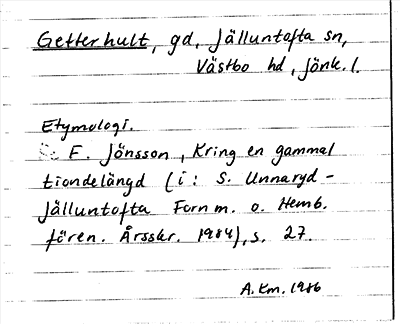 Getterhult, gd, Jälluntofta sn,
Västbo hd, Jönk. l.
Etymologi.
F. Jönsson, Kring en gammal
tiondelängd (i: S. Unnaryd -
Jälluntofta Fornm. o. Hemb.
fören. Årsskr. 1984), s. 27.
A. Km. 1986